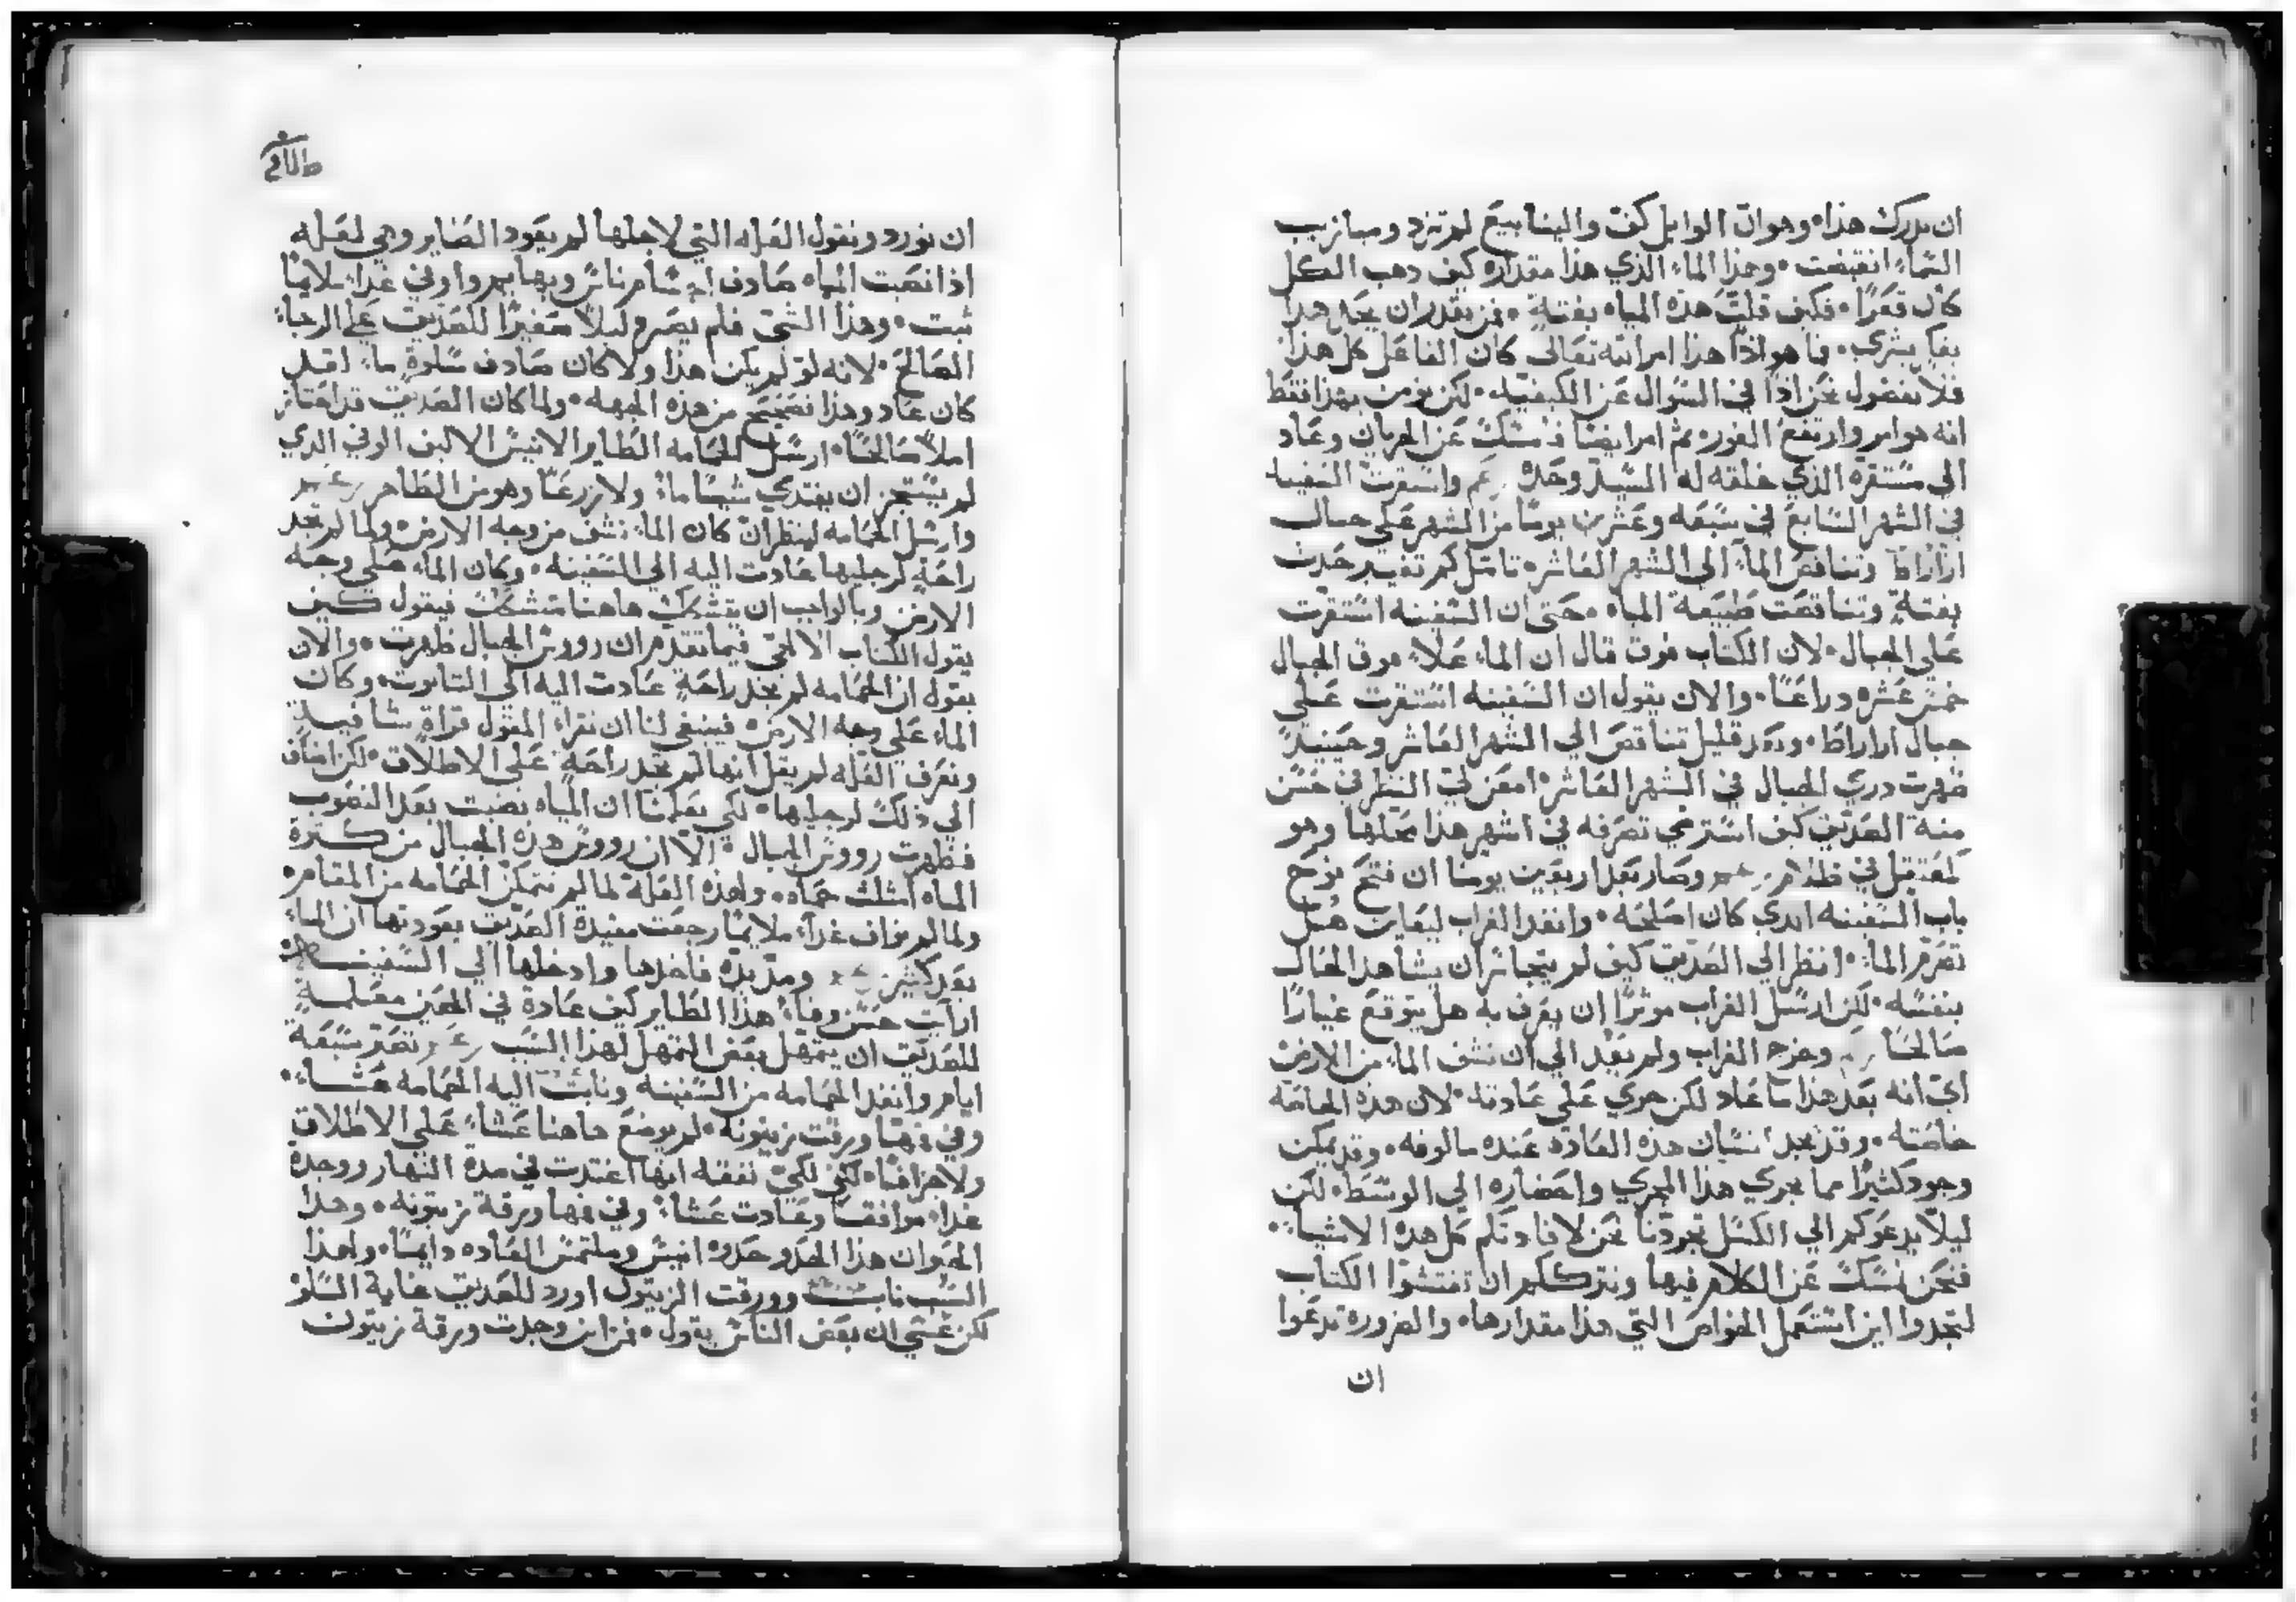 ان يدرك هذا، وهو ان الوابل كفت والينابيع لم تزد وميازيب
السماء انقبضت. وهذا الماء الذي هذا مقداره كيف دهب الكل
كان قعرًا، فكيف قلت هذه المياه بغتة. فمن يقدر ان يحد هذا
بفكر بشري. فما هو اذًا هذا امر الله تعالى كان الفاعل كل هذا
فلا نفضول نحن اذًا في السوال عن الكيفيه. لكن نومن بهذا فقط
انه هو امر وارتفع الغوره ثم امر ايضًا فامسك عن الجريان وعاد
الى مستقره الذي خلقه له السيد وحده واستقرت السفينه
في الشهر السابع في سبعه وعشرين يومًا من الشهر على جبال
اراراط وتناقص الماء الى الشهر العاشر، تامل كم تغيير حدث
بغتة وتناقصت طبيعة المياه. حتى ان السفينه استقرت
على الجبال. لان الكتاب فوق قال ان الماء علاء فوق الجبال
خمس عشره دراعًا. والان يقول ان السفينه استقرت على
جبال اراراط. وبعد قليل تناقص الي الشهر العاشر وحينيدً
ظهرت دري الجبال في الشهر العاشر، امعن لي النظر في حسن
منة الصديق كيف استرضي تصرفه في اشهر هذا محلها وهو
كمعتقل في ظلام وصار بعد اربعين يومًا ان فتح نوح
باب السفينه الدي كان اصلحه. وانفد الغراب ليعاين هل
تصرم الماء. انظر الي الصديق كيف لم يتجاسر ان يشاهد الحال
بنفسه. لكن ارسل الغراب موثرًا ان يعرف به هل يتوقع خيارًا
صالحًا وخرج الغراب ولم يعد الي ان نشف الماء من الارض
اي انه بعد هذا ما عاد لكن جري على عادته. لان هذه الحاصه
خاصته. وقد نجد انسان هذه العاده عنده مالوفه. وقد يمكن
وجود كثيرًا مما يجري هذا المجري واحضاره الي الوسط. لكن
ليلا يدعوكم الي الكسل تجودنا نحن لافادتكم كل هذه الاشياء.
فنحن نمسك عن الكلام فيها ونترككم ان تفتشوا الكتاب
لتجدوا اين استعمل الخواص التي هذا مقدارها. والضروره تدعوا
ان
ان نورد ونقول العله التي لاجلها لم يعود الطاير وهي لعله
اذا نضبت المياه صادف اجسام ناس وبهايم واوفي غداء ملايمًا
ثبت. وهذا الشي فلم يصر وليلا صغيرًا للصديق على الرجاء
الصالح. لانه لو لم يكن هذا ولا كان صادف سلوة ما، اقل
كان عاد وهذا نصحح من هذه الجهه. ولما كان الصديق قد اقتاز
املاً صالحًا. ارسل الحمامه الطاير الانيس الالين الوفي الدي
لم يستجز ان يغتدي شيًا ما ولا زرعًا وهو من الطاهر
وارسل الحمامه لينظر ان كان الماء نشف من وجه الارض، ولما لم تجد
راحة لرجليها عادت اليه الي السفينه. وكان الماء على وجه
الارض وبالواجب ان يتشكك هاهنا متشكك فيقول كيف
يقول الكتاب الالهي فيما تقدم ان رووس الجبال ظهرت. والان
يقول ان الحمامه لم تجد راحة عادت اليه الي التابوت، وكان
الماء على وجه الارض، فينبغي لنا ان نقراء المقول قراة شافية
ونعرف العله لم يقل انها لم تجد راحة على الاطلاق. لكن اضاف
الي ذلك لرجليها. لكي يعلمنا ان المياه نضبت بعد النضوب
فظهرت رووس الجبال. الا ان رووس هذه الجبال من كثرة
المياه امثلت حماه. ولهذه العلة لما لم تتمكن الحمامه من المقام
ولما لم تواف غداء ملايمًا رجعت مفيدة الصديق بعودتها ان الماء
بعد كثير ومد يده فاخدها وادخلها الي السفينه
ارايت حسن وفاء هذا الطاير كيف عاده في الحين معلمة
للصديق ان يتمهل بعض التمهل لهذا السبب تصبر سبعة
ايام وانفد الحمامه من السفينه ونابت اليه الحمامه عشاء.
وفي فهمًا ورقت زيتونه. لم يوضع هاهنا عشاء على الاطلاق
ولا جزافًا. لكن لكي نفقه انها اغتدت في مدة النهار ووجدة
غداء موافقًا وعادت عشاء وفي فمها ورقة زيتونه. وهدا
الحيوان هذا الحد وحدوه انيس وملتمس العاده دايمًا. ولهذا
السبب نابت وورقت الزيتون اورد للصديق غاية السلو
لكن عسي ان بعض الناس يقول. فمن اين وجدت ورقة زيتون